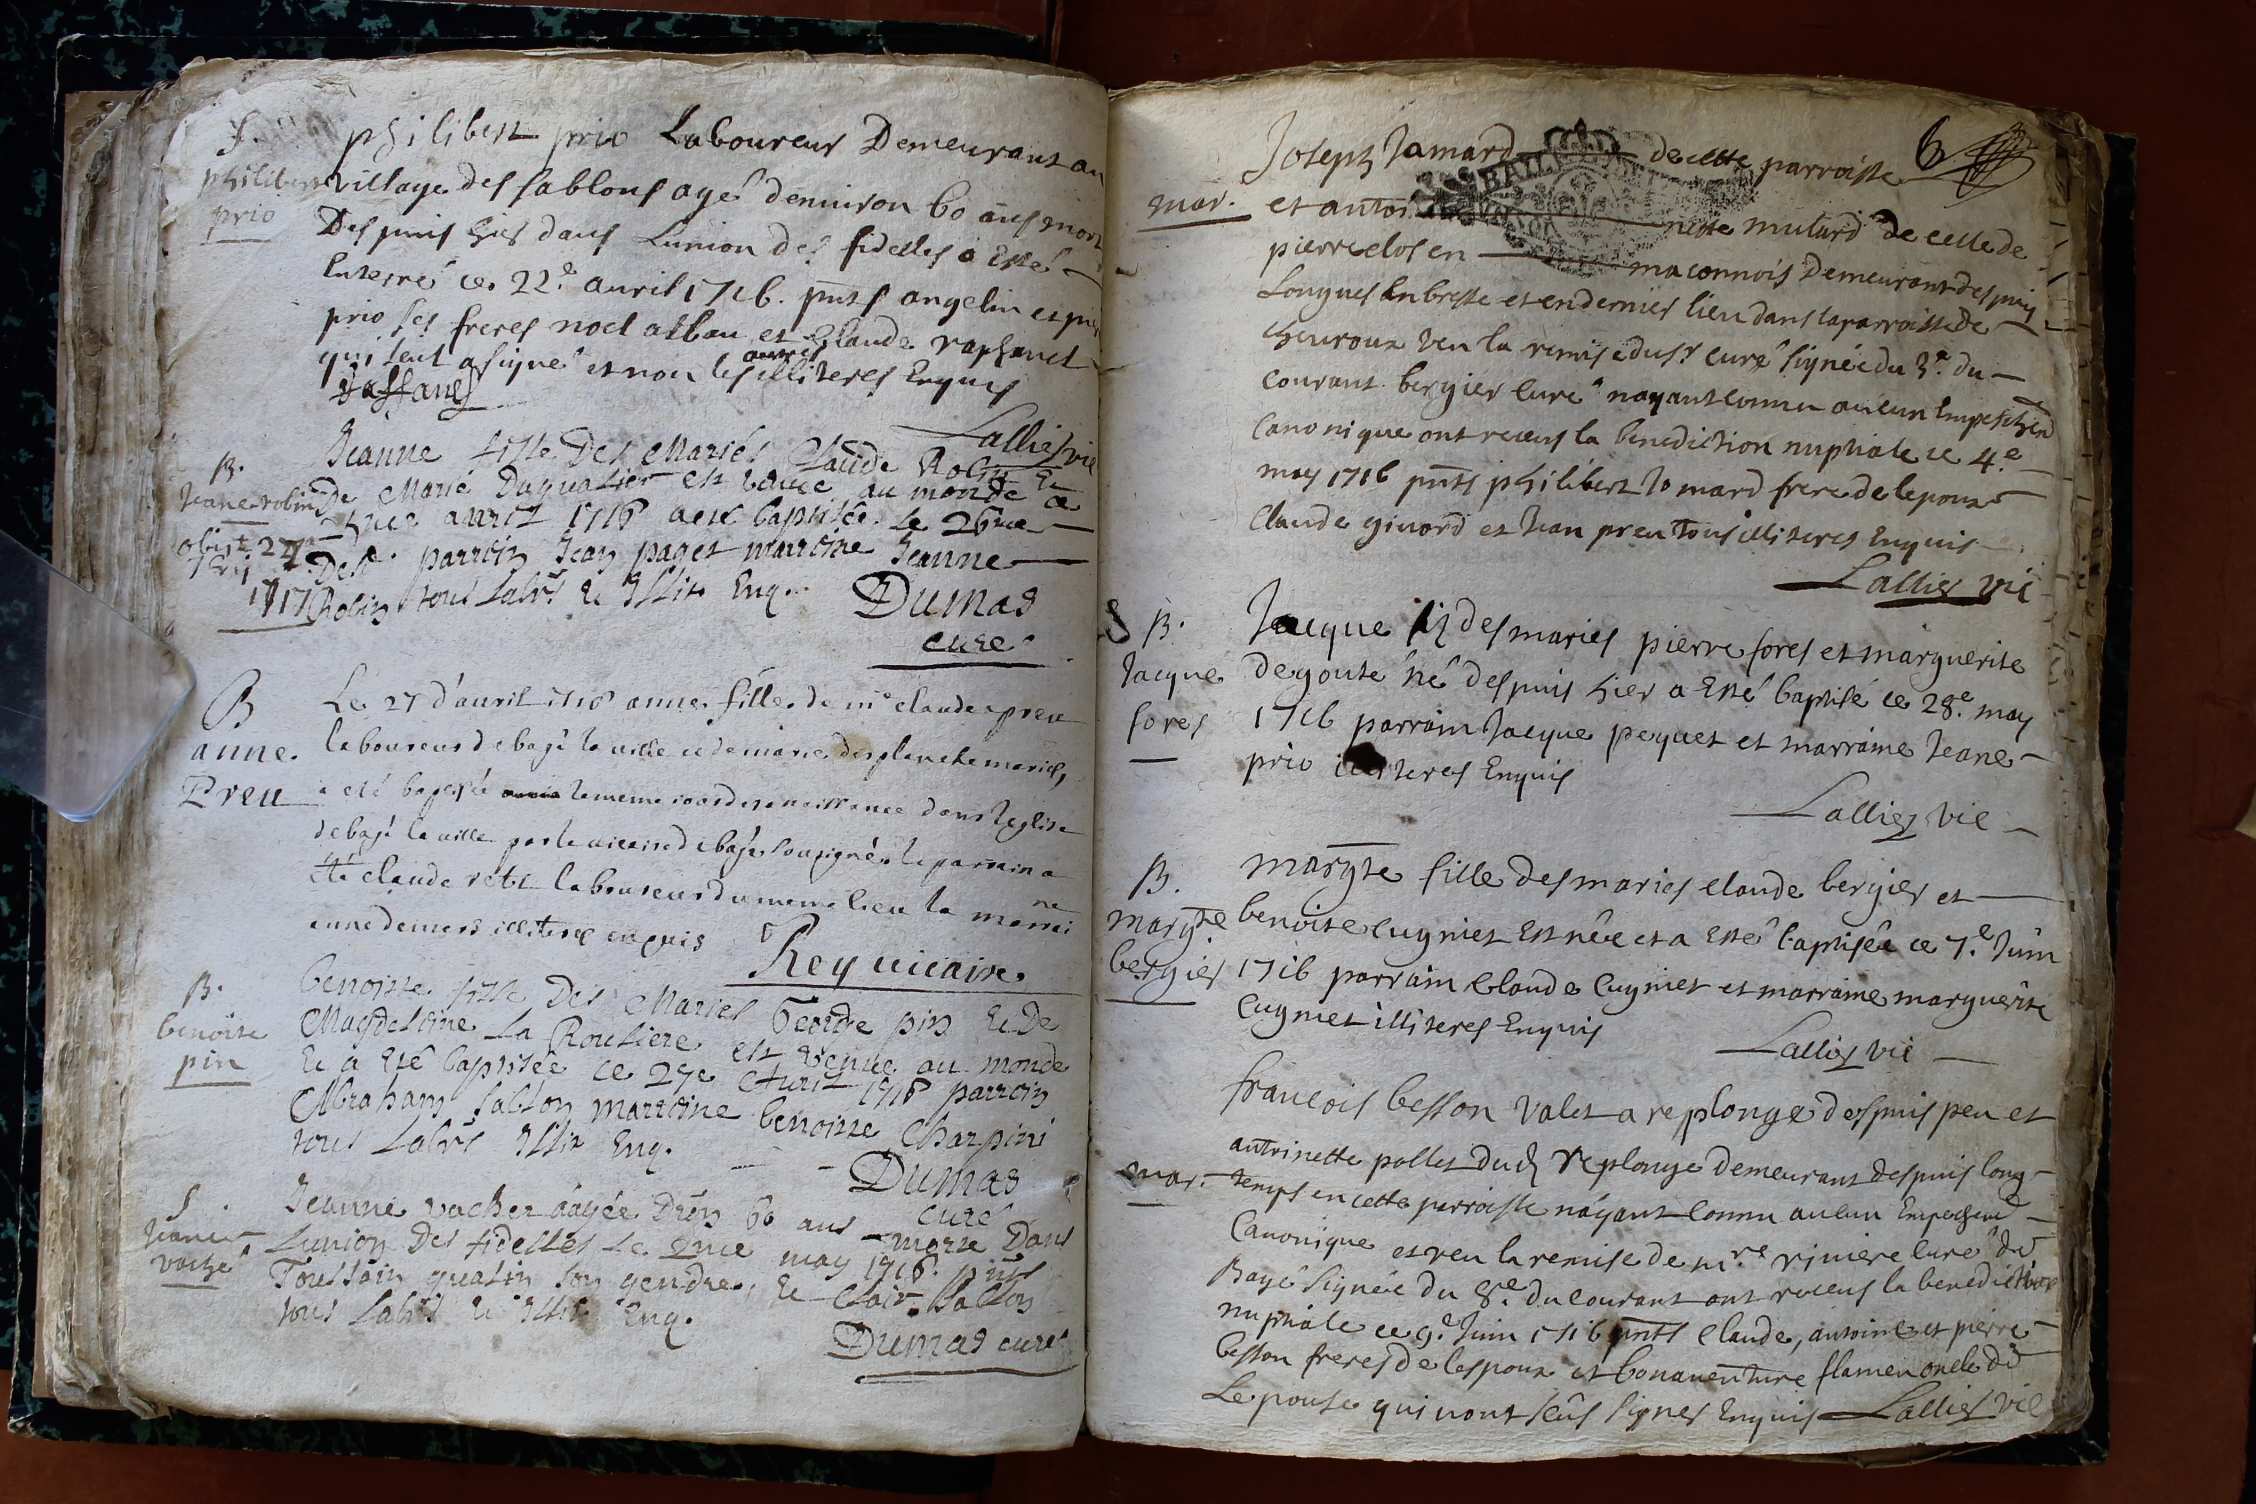 S.
philibert
prio
philibert prio Laboureur Demeurant au
village des sablons agé denuiron 60 ans mort
Despuis hier dans Lunion des fidelles a esté
Enterré ce 22e auril 1716. pnts angelin et pre
prio ses freres noel alban et Claude raphanel
qui seul a signé et non les autres illiteres Enquis
Lallier vic
B.
Jeane robin
obiit 27
1717
Jeanne fille Des Mariés Claude Robin et
De Marie Duqualier est venue au monde ce
auril 1716 a esté baptisée Le 26me
Parroin Jean paget marroine Jeanne
Robin tous Labrs et Illit Enq.
Dumas
curé
B
anne.
Preu
Le 27 d'auril 1716 anne fille de me claude preu
laboureur de bagé la ville et de marie desplanche mariés,
a eté baptisée le meme iour de sa naissance dans leglise
de bagé la ville par le uicaire de bagé soussigné. le parrain a
été claude laboureur du meme lieu la marrai
ne
anne demers illiteres enquis
Rey uicaire.
B.
benoite
pin
benoitte fille Des Mariés George pin et De
Magdeloine La Routiere est venue au monde
et a esté baptisée ce 29e Auril 1716 parroin
Abraham Sablon marroine benoitte Charpini
tous Labrs Illit Enq.
Dumas
curé
S
Jeane
vaché
Jeanne vacher aagée D'uon 60 ans morte Dans
Lunion Des fidelles Le 2me may 1716. pnts
Toussain qualin son gendre, et Clair Sablon
tous Labrs et Illit Enq.
Dumas curé
6
mar.
Joseph Jamard de cette parroisse
et antoi nette mulard de celle de
pierreclos en maconnois Demeurant despuis
Longues En bresse et en dernier lieu dans la parroisse de
cheuroux veu la remise du sr curé signée du 3e du
courant bergier curé nayant connu aucun Empeschemt
Canonique ont receus la benediction nuptiale ce 4e
may 1716 pnts philibert Jomard frere de lepoux
Claude giuord et Jean preu tous illiteres Enquis
Lallier vic
B.
Jacque
fores
Jacque fiz des mariés pierre fores et marguerite
degoute né despuis hier a Esté baptisé ce 28e may
1716 parrain Jacque pequet et marraine Jeane
prio illiteres Enquis
Lallier vic
B.
margte
bergier
margte fille des mariés claude bergier et
benoite cugniet Est née et a Esté baptisée ce 7e Juin
1716 parrain Claude Cugniet et marraine marguerite
Cugniet illiteres Enquis
Lallier vic
mar.
francois besson valet a replonge despuis peu et
antoinette pollet dud replonge demeurant despuis long
temps en cette parroisse nayant connu aucun Empeschemt
Canonique et veu la remise de mre riuiere curé de
Bagé signée du 8e du courant ont receus la benediction
nuptiale ce 9e Juin 1716 pnts Claude, antoine et pierre
besson freres de lespoux et bonauenture flamen oncle de
Lepouse qui nont sceus signer Enquis Lallier vic